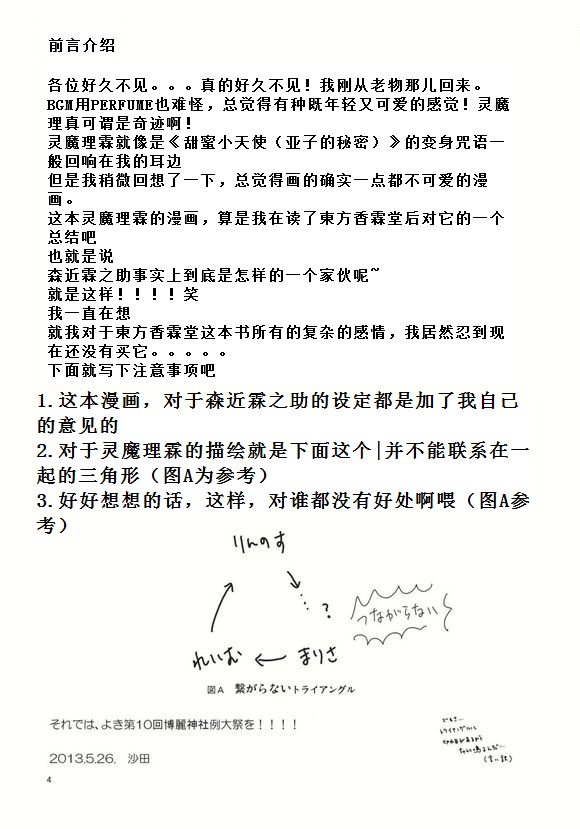 前言介绍
各位好久不见。。。真的好久不见！我刚从老物那儿回来。
BGM用PERFUME也难怪，总觉得有种既年轻又可爱的感觉！灵魔
理真可谓是奇迹啊！
灵魔理霖就像是《甜蜜小天使（亚子的秘密）》的变身咒语一
般回响在我的耳边
但是我稍微回想了一下，总觉得画的确实一点都不可爱的漫
画。
这本灵魔理霖的漫画，算是我在读了東方香霖堂后对它的一个
总结吧
也就是说
森近霖之助事实上到底是怎样的一个家伙呢~
就是这样！！！！笑
我一直在想
就我对于東方香霖堂这本书所有的复杂的感情，我居然忍到现
在还没有买它。。。。。
下面就写下注意事项吧
1.这本漫画，对于森近霖之助的设定都是加了我自己
的意见的
2.对于灵魔理霖的描绘就是下面这个|并不能联系在一
起的三角形（图A为参考）
3.好好想想的话，这样，对谁都没有好处啊喂（图A参
考）
りんのす
?
つながらない
れいむ
まりさ
図A 繋がらないトライアングル
それでは、よき第10回博麗神社例大祭を！！！！
2013.5.26. 沙田
でもさ…
(言い訳)
4